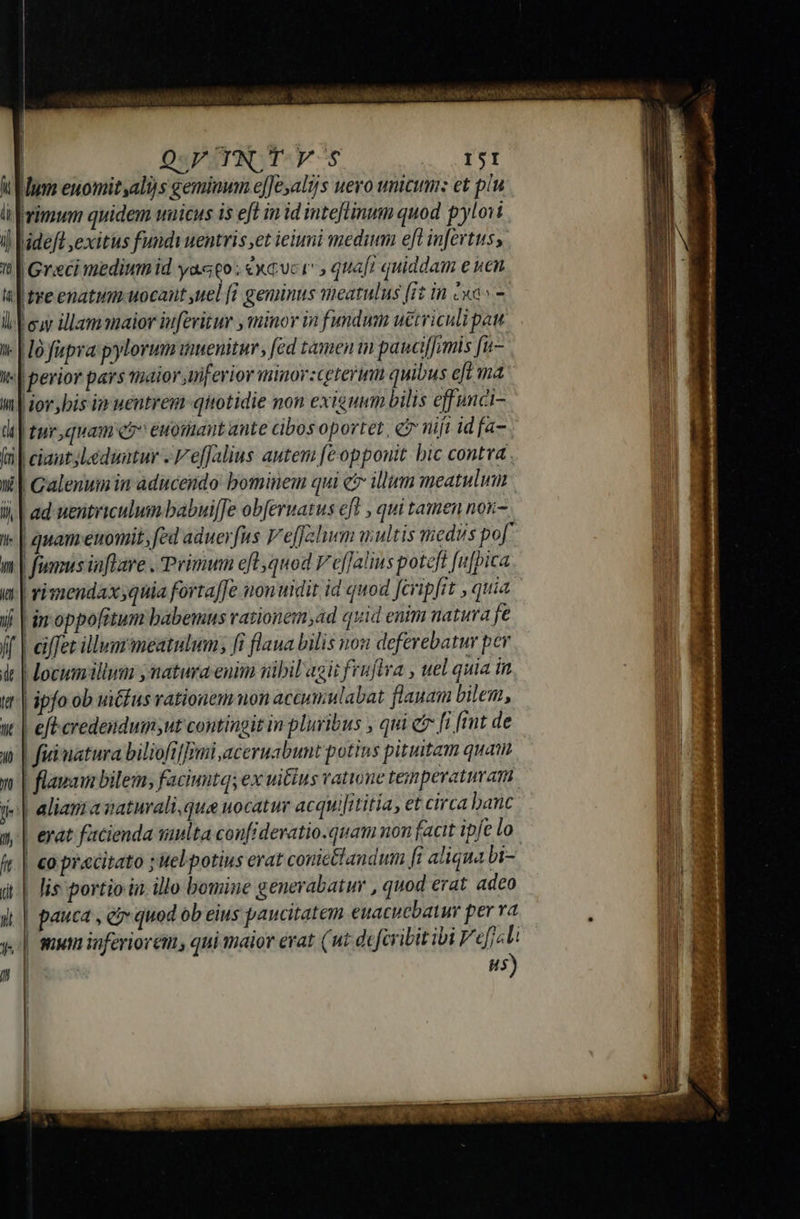 QVINTVS 151
lum euomit, alijs geminum esse, alijs uero unicum: et plu
rimum quidem unicus is est in id intestinum quod pylori
idest, exitus fundi uentris, et ieiuni medium est insertus,
Græci medium id quasi quiddam e uen
tre enatum uocant, uel si geminus meatulus sit in
illam maior inseritur, minor in fundum uẽtriculi pau
lò supra pylorum inuenitur, sed tamen in paucissimis su-
perior pars maior, inferior minor: cęterum quibus est ma
ior, bis in uentrem quotidie non exiguum bilis effundi-
tur, quam & euomant ante cibos oportet, & nisi id fa-
ciant, læduntur. Vessalius autem se opponit hic contra
Galenum in aducendo hominem qui & illum meatulum
ad uentriculum habuisse obseruatus est, qui tamen non-
quam euomit, sed aduersus Vessalium multis modis pos
sumus instare. Primum est, quod Vessalius potest suspica
ri mendax, quia fortasse non uidit id quod scripsit, quia
in oppositum habemus rationem, ad quid enim natura fe
cisset illum meatulum, si flaua bilis non deferebatur per
locum illum, natura enim nihil agit frustra, uel quia in
ipso ob uictus rationem non accumulabat flauam bilem,
est credendum, ut contingit in pluribus, qui & si sint de
sui natura biliosissimi, aceruabunt potius pituitam quam
flauam bilem, faciuntq; ex uictus ratione temperaturam
aliam a naturali, quæ uocatur acquisititia, et circa hanc
erat facienda multa consideratio. quam non facit ipse lo
co præcitato; uel potius erat coniectandum si aliqua bi-
lis portio in illo homine generabatur, quod erat adeo
pauca, & quod ob eius paucitatem euacuebatur per ra
mum inferiorem, qui maior erat (ut describit ibi Vessali
us)